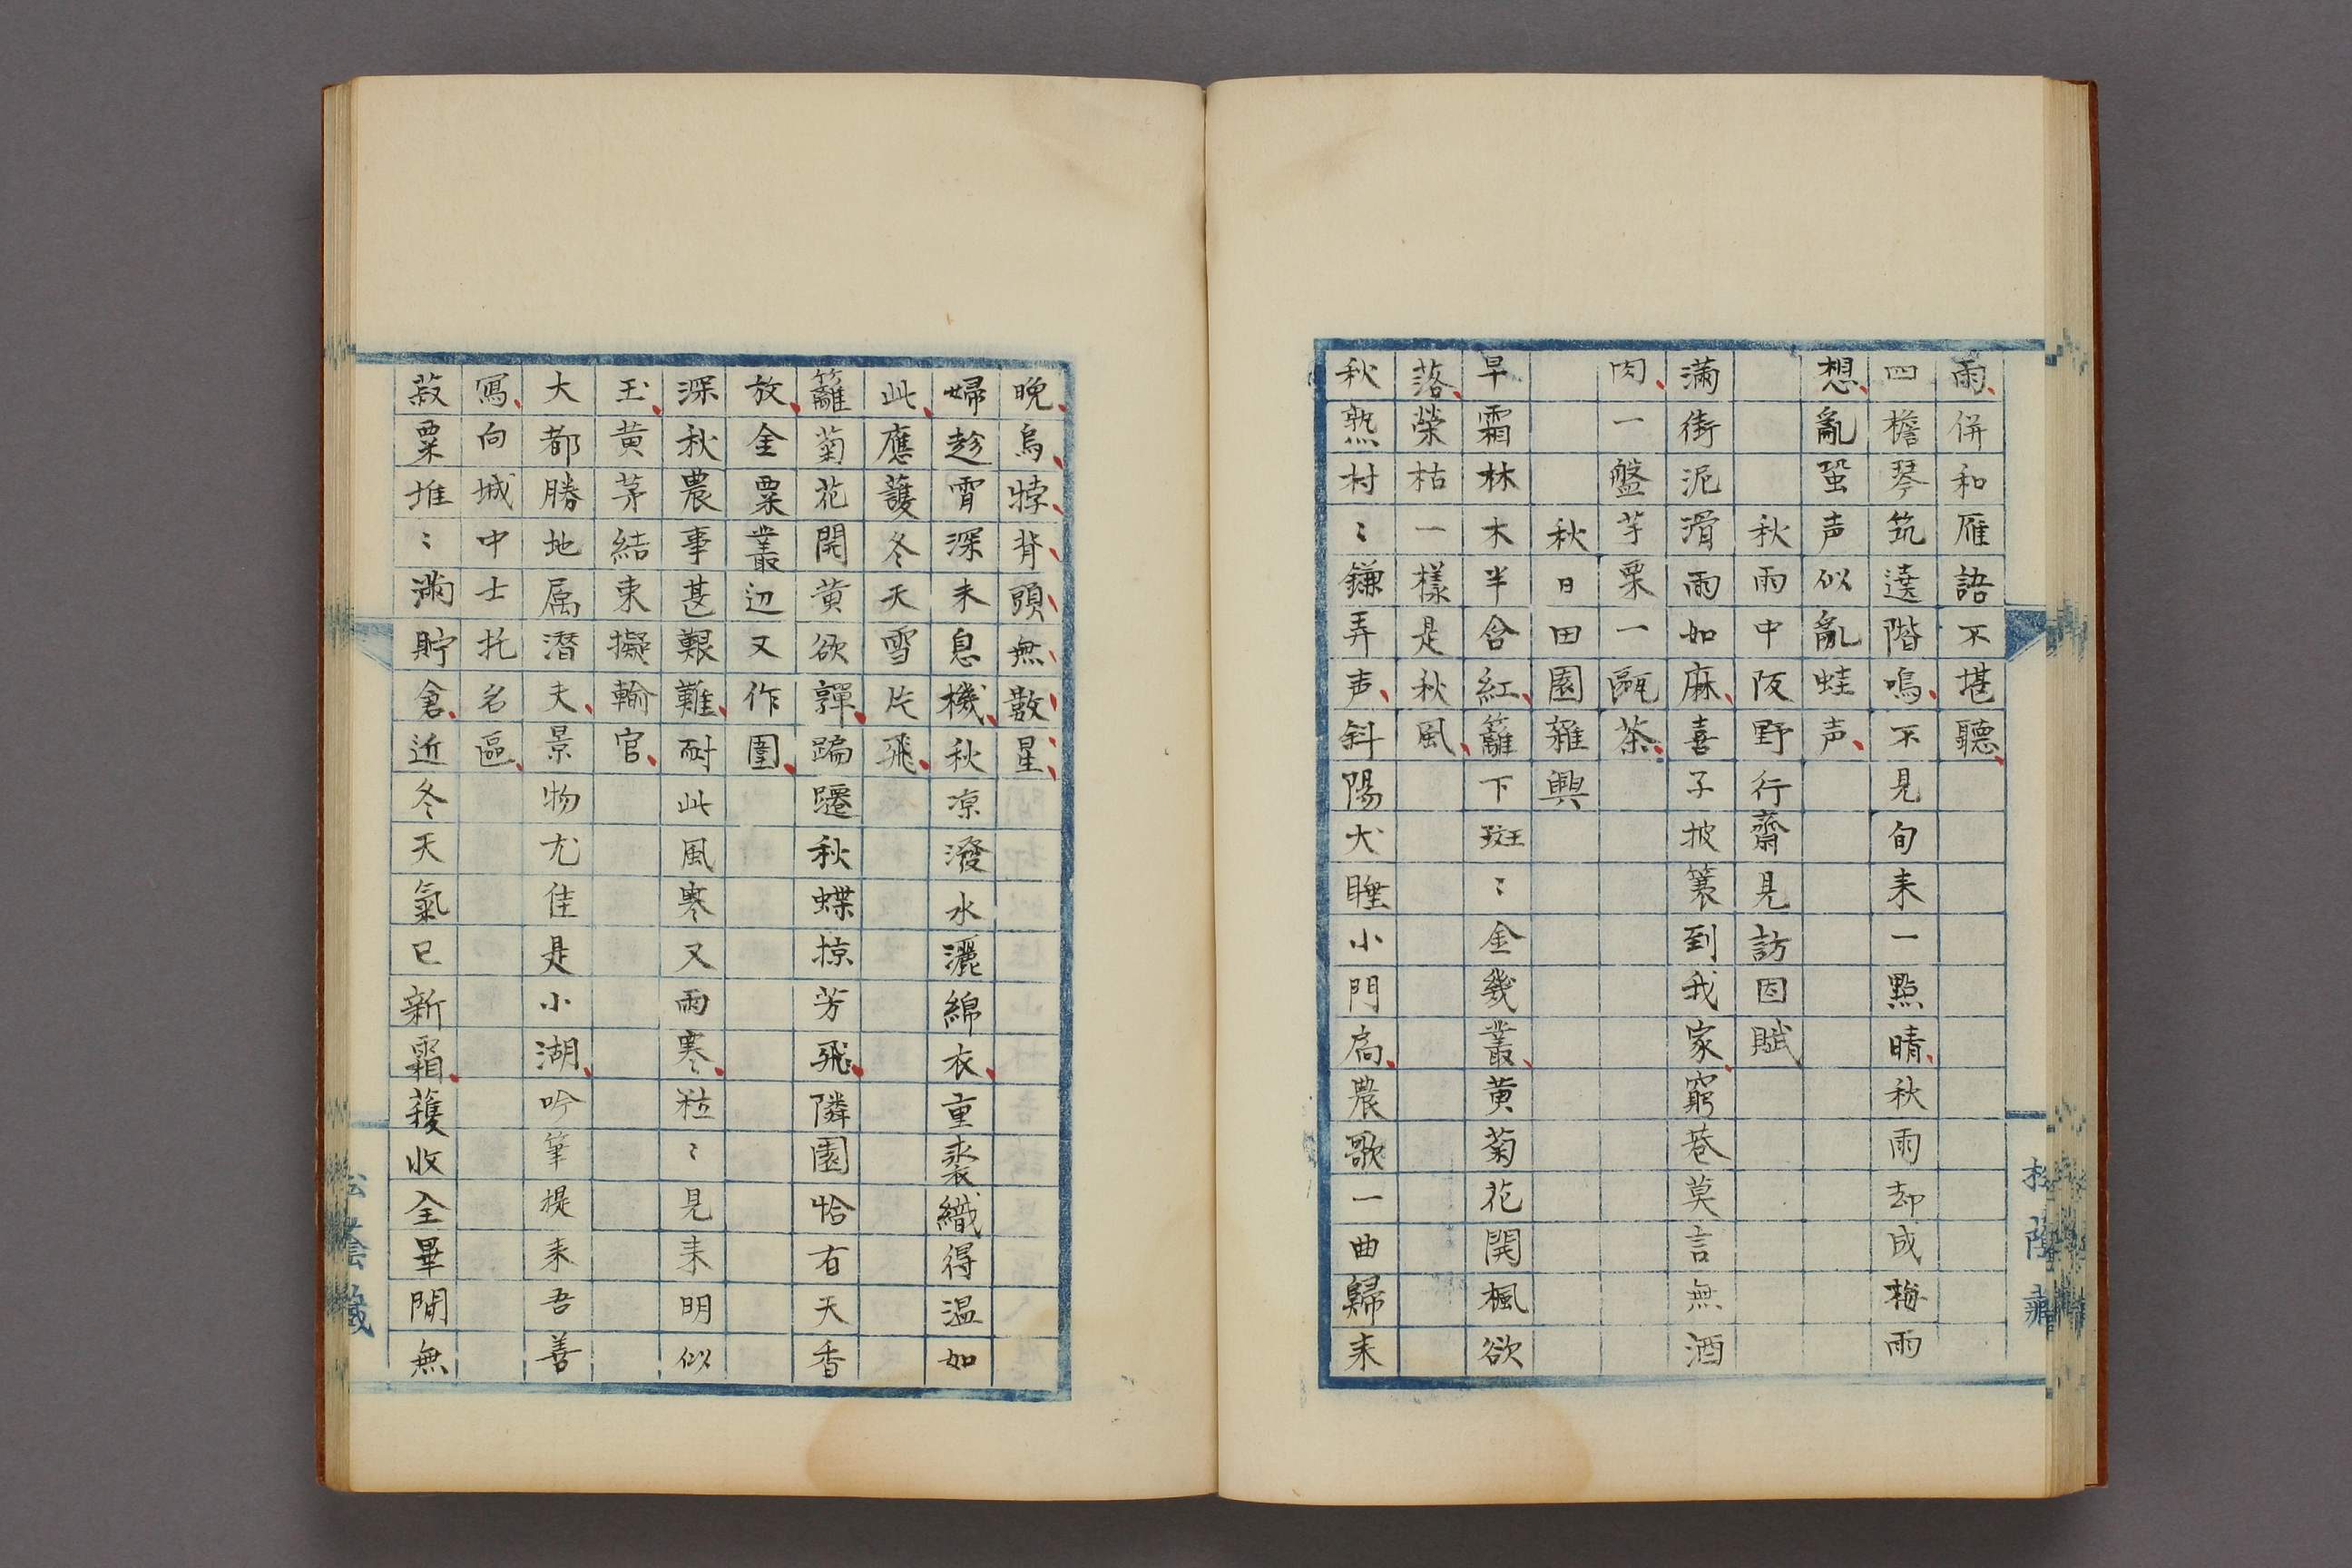 雨併和雁語不堪聽
四檐琴筑遶階鳴不見旬来一點晴秋雨却成梅雨
想亂蛩声似亂蛙声
秋雨中阪野行齋見訪因賦
滿街泥滑雨如麻喜子披簑到我家窮巷莫言無酒
肉一盤芋栗一甌茶
秋日田園雜興
早霜林木半含紅籬下斑〻金幾叢黄菊花開楓欲
落榮枯一樣是秋風
秋熟村〻鎌弄声斜陽犬睡小門扃農歌一曲歸来
晩烏㹀背頭無數星
婦趁宵深未息機秋凉潑水灑綿衣重裘織得温如
此應護冬天雪片飛
籬菊花開黄欲嚲蹁躚秋蝶掠芳飛隣園恰有天香
放金粟叢辺又作圍
深秋農事甚艱難耐此風寒又雨寒粒〻見来明似
玉黄茅結束擬輸官
大都勝地属潜夫景物尤佳是小湖吟筆提来吾善
寫向城中士托名區
菽粟堆〻滿貯倉近冬天氣已新霜穫收全畢閒無